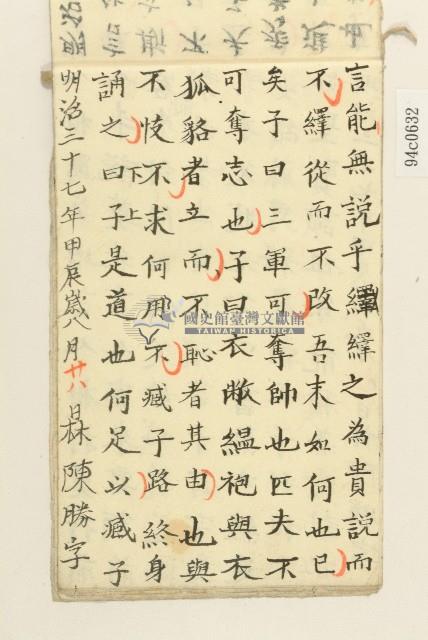 言能無說乎繹繹之為貴說而
不繹從而不改吾末如何也已
矣子曰三軍可奪帥也匹夫不
可奪志也子曰衣敝縕袍與衣
狐貉者立而不恥者其由也與
不忮不求何用不臧子路終身
下上
誦之曰子是道也何足以臧子
明治三十七年甲辰歲八月廿八陳勝字
94c0632
國史館臺灣文獻館
TAIWAN HISTORICA